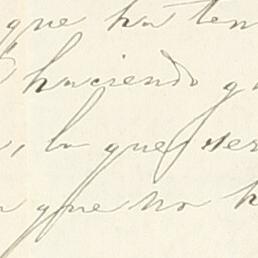 que ha ten
haciendo g
, la que ser
que no h